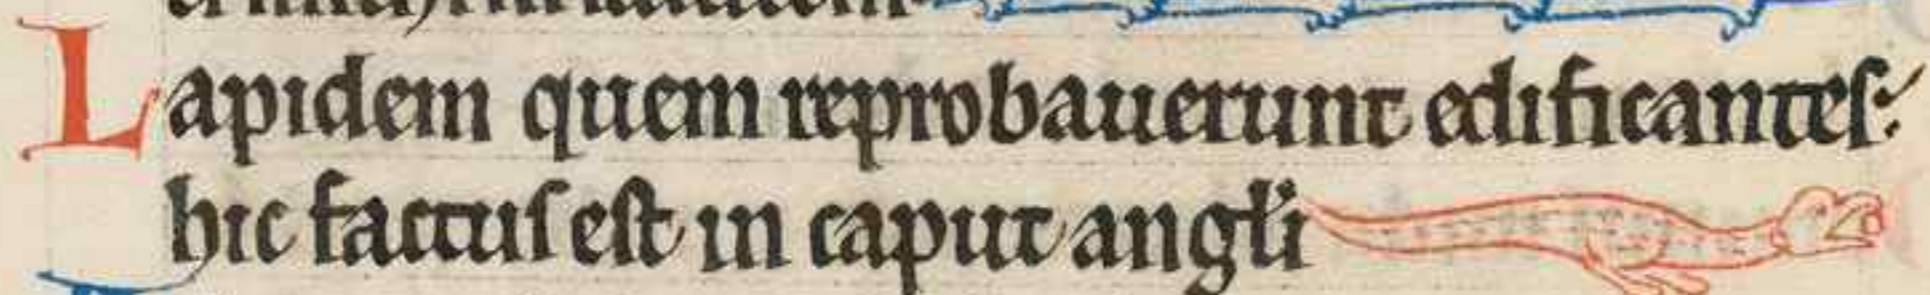 Lapidem quem reprobauerunt edificanteſ:
hic factuſ eſt in caput angľi